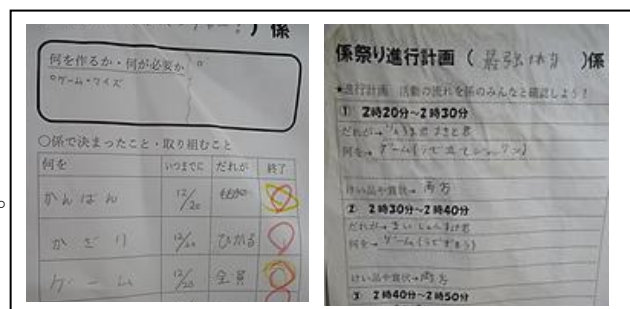 ）係
何を作るか・何が必要か
○ゲーム・クイズ
○係で決まったこと・取り組むこと
何を いつまでに だれが 終了
かんばん 12/20
かざり 12/20 ひかる
ゲーム 12/20 全員
係祭り進行計画（最強体育）係
★進行計画 活動の流れを係のみんなと確認しよう！
① 2時20分～2時30分
だれが→
何を→ ゲーム
けい品や賞状→ 両方
② 2時30分～2時40分
だれが→
何を→ ゲーム(うでずもう)
けい品や賞状→両方
③ 2時40分～2時50分